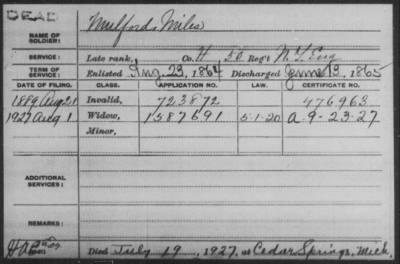 DEAD
NAME OF SOLDIER: Mulford, Miles
SERVICE: Late rank, Co. H 50 Reg't N.Y. Eng
TERM OF SERVICE: Enlisted Aug. 23, 1864 Discharged June 13, 1865
DATE OF FILING. CLASS. APPLICATION NO. LAW. CERTIFICATE NO.
1889 Aug 21 Invalid, 723872 476963
1927 Aug 1 Widow, 1587691 5-1-20 A-9-23-27
Minor,
ADDITIONAL SERVICES:
REMARKS:
Died July 19, 1927, at Cedar Springs, Mich.